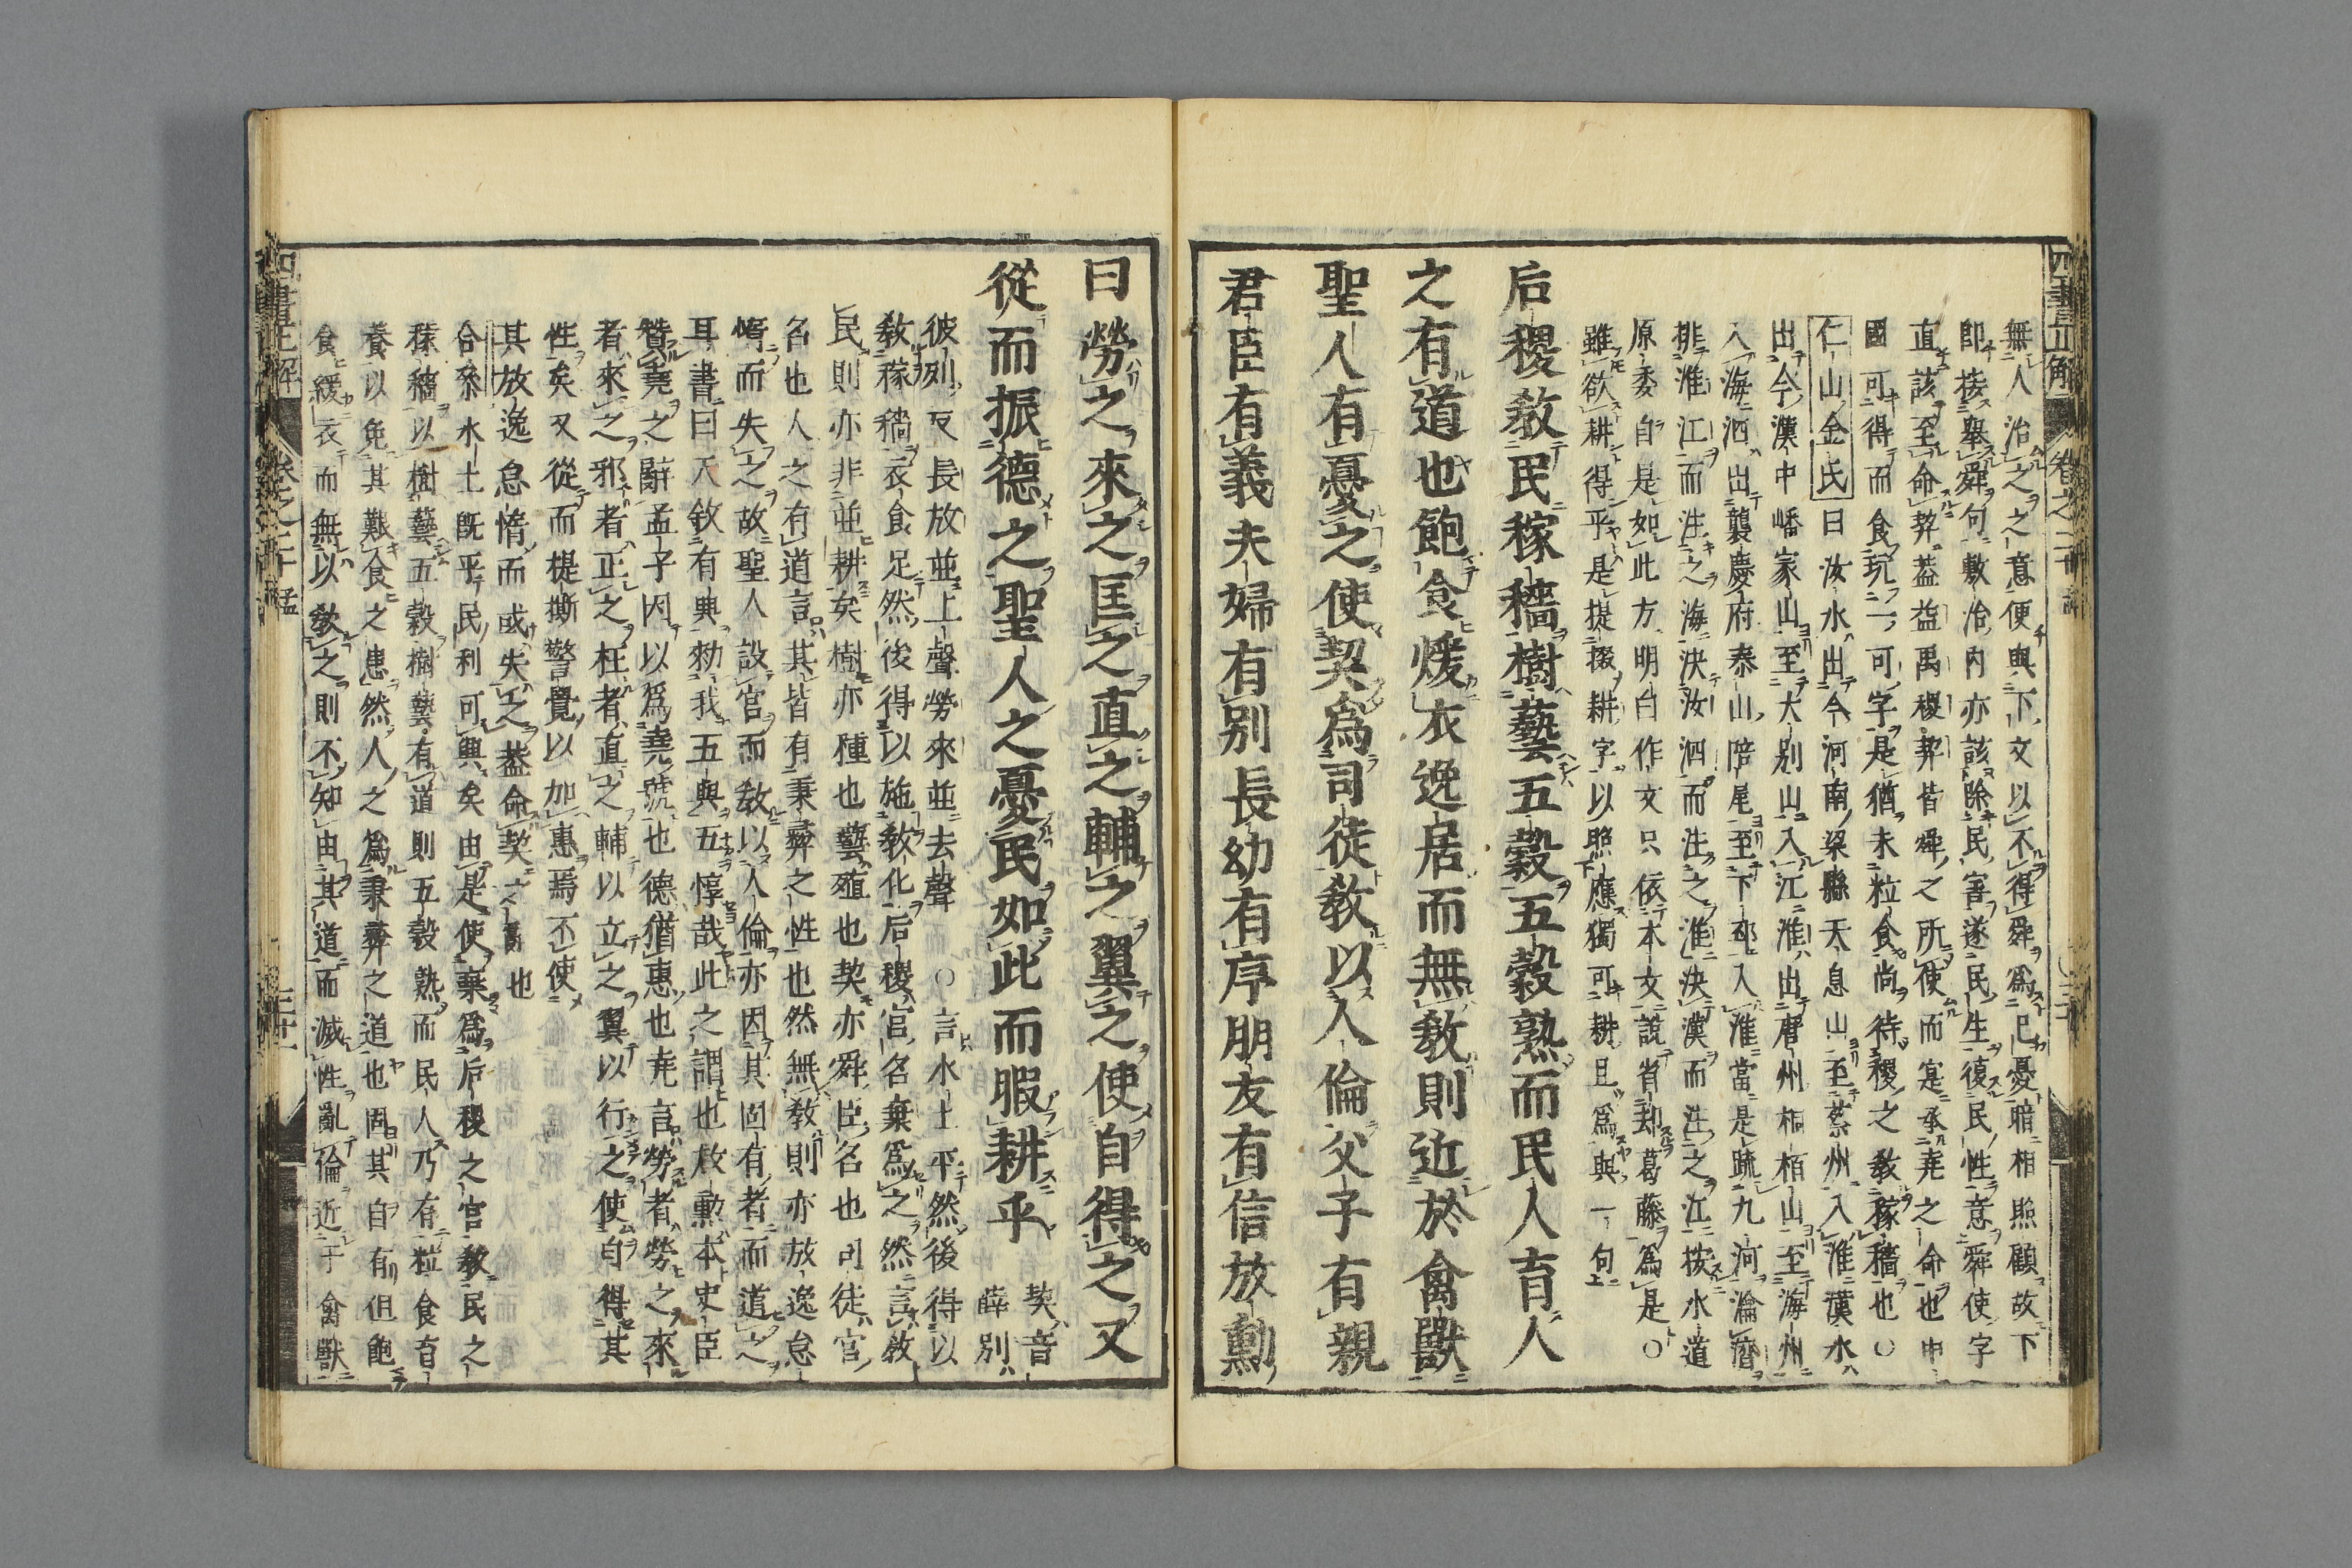 無人治之之意便與下文以不得舜爲己憂暗相照顧故下
卽接舉舜句敷治內亦該除民害遂民生復民性意舜使字
直該至命契益益禹稷契皆舜之所使而寔承堯之命也中
國可得而食玩一可字是猶未粒食尚待稷之敎稼穡也○
仁山金氏曰汝水出今河南梁縣天息山至蔡州入淮漢水
出今漢中嶓冢山至大別山入江淮出唐州桐栢山至海州
入海泗出襲慶府泰山陪尾至下邳入淮當是疏九河瀹濟
排淮江而注之海決汝泗而注之淮決漢而注之江按水道
原委自是如此方明白作文只依本文說省却葛藤爲是○
雖欲耕得乎是提掇耕字以照應獨可耕且爲與一句
后稷敎民稼穡樹藝五穀五穀熟而民人育人
之有道也飽食煖衣逸居而無敎則近於禽獸
聖人有憂之使契爲司徒敎以人倫父子有親
君臣有義夫婦有別長幼有序朋友有信放勳
曰勞之來之匡之直之輔之翼之使自得之又
從而振德之聖人之憂民如此而暇耕乎 契音薛別
彼列反長放並上聲勞來並去聲○言水土平然後得以
敎稼穡衣食足然後得以施敎化后稷官名棄爲之然言敎
民則亦非並耕矣樹亦種也藝殖也契亦舜臣名也司徒官
名也人之有道言其皆有秉彝之性也然無敎則亦放逸怠
惰而失之故聖人設官而敎以人倫亦因其固有者而道之
耳書曰天敘有典勑我五典五惇哉此之謂也放勳本史臣
贊堯之辭孟子因以爲堯號也德猶惠也堯言勞者勞之來
者來之邪者正之枉者直之輔以立之翼以行之使自得其
性矣又從而提撕警覺以加惠焉不使
其放逸怠惰而或失之葢命契之言也
合叅水土旣平民利可興矣由是使棄爲后稷之官敎民之
稼穡以樹藝五穀樹藝有道則五穀熟而民人乃有粒食育
養以免其艱食之患然人之爲秉彝之道也固其自有但飽
食煖衣而無以敎之則不知由其道而滅性亂倫近于禽獸